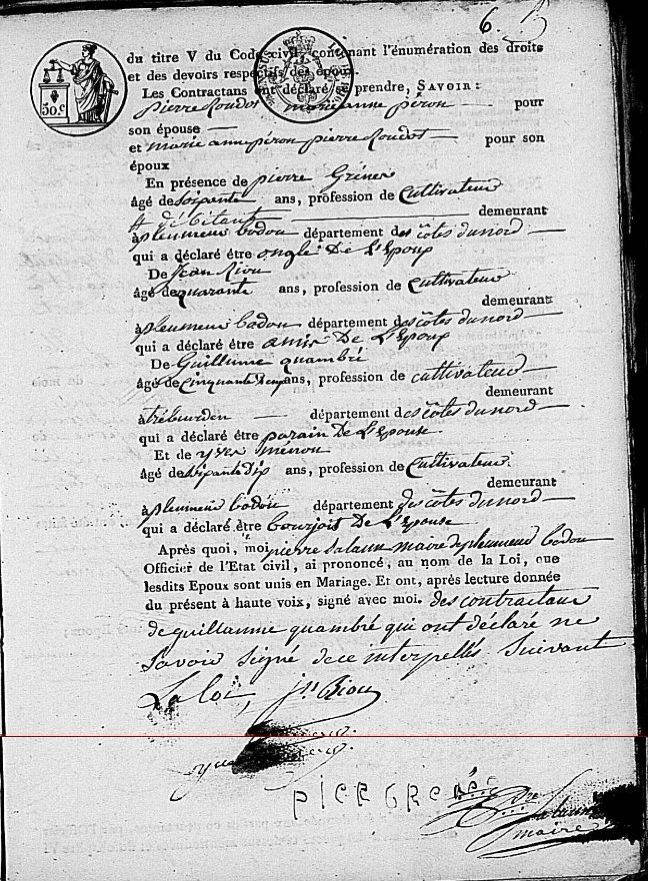 6.
du titre V du Code civil, contenant l'énumération des droits
et des devoirs respectifs des époux.
Les Contractans ont déclaré prendre, SAVOIR:
pierre Roudot marie anne péron pour
son épouse
et marie anne péron pierre Roudot pour son
époux
En présence de pierre Gréner
âgé de Soixante ans, profession de Cultivateur
demeurant
à pleumeur bodou département des côtes du nord
qui a déclaré être De L'Epoux
De Jean Riou
âgé de quarante ans, profession de Cultivateur
demeurant
à pleumeur bodou département des côtes du nord
qui a déclaré être amis De L'Epoux
De Guillaume quambré
âgé de Cinquante ans, profession de cultivateur
demeurant
à trébeurden département des côtes du nord
qui a déclaré être parain De L'Epouse
Et de yves
âgé de Soixante Dix ans, profession de Cultivateur
demeurant
à pleumeur bodou département des côtes du nord
qui a déclaré être bourjois De L'Epouse
Après quoi, moi pierre Salaun maire de pleumeur bodou
Officier de l'Etat civil, ai prononcé, au nom de la Loi, que
lesdits Epoux sont unis en Mariage. Et ont, après lecture donnée
du présent à haute voix, signé avec moi. des contractans
de guillaume quambré qui ont déclaré ne
Savoir Signé de ce interpellés Suivant
La loi, Riou
PIER GRENÉC
Salaun
maire
50.c